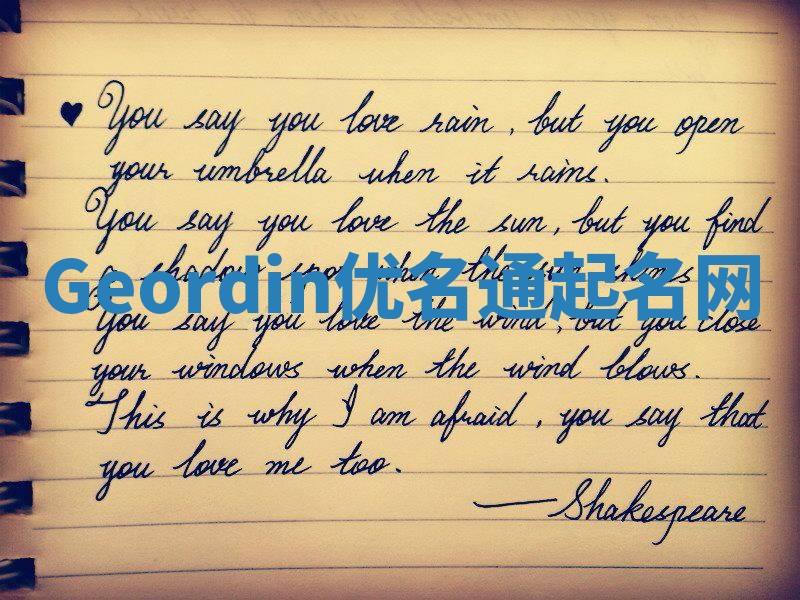 ♥ You say you love rain, but you open
your umbrella when it rains.
You say you love the sun, but you find
a shadow spot when the sun shines
Geordin优名通起名网
You say you love the wind, but you close
your windows when the wind blows.
This is why I am afraid, you say that
you love me too.
— Shakespeare